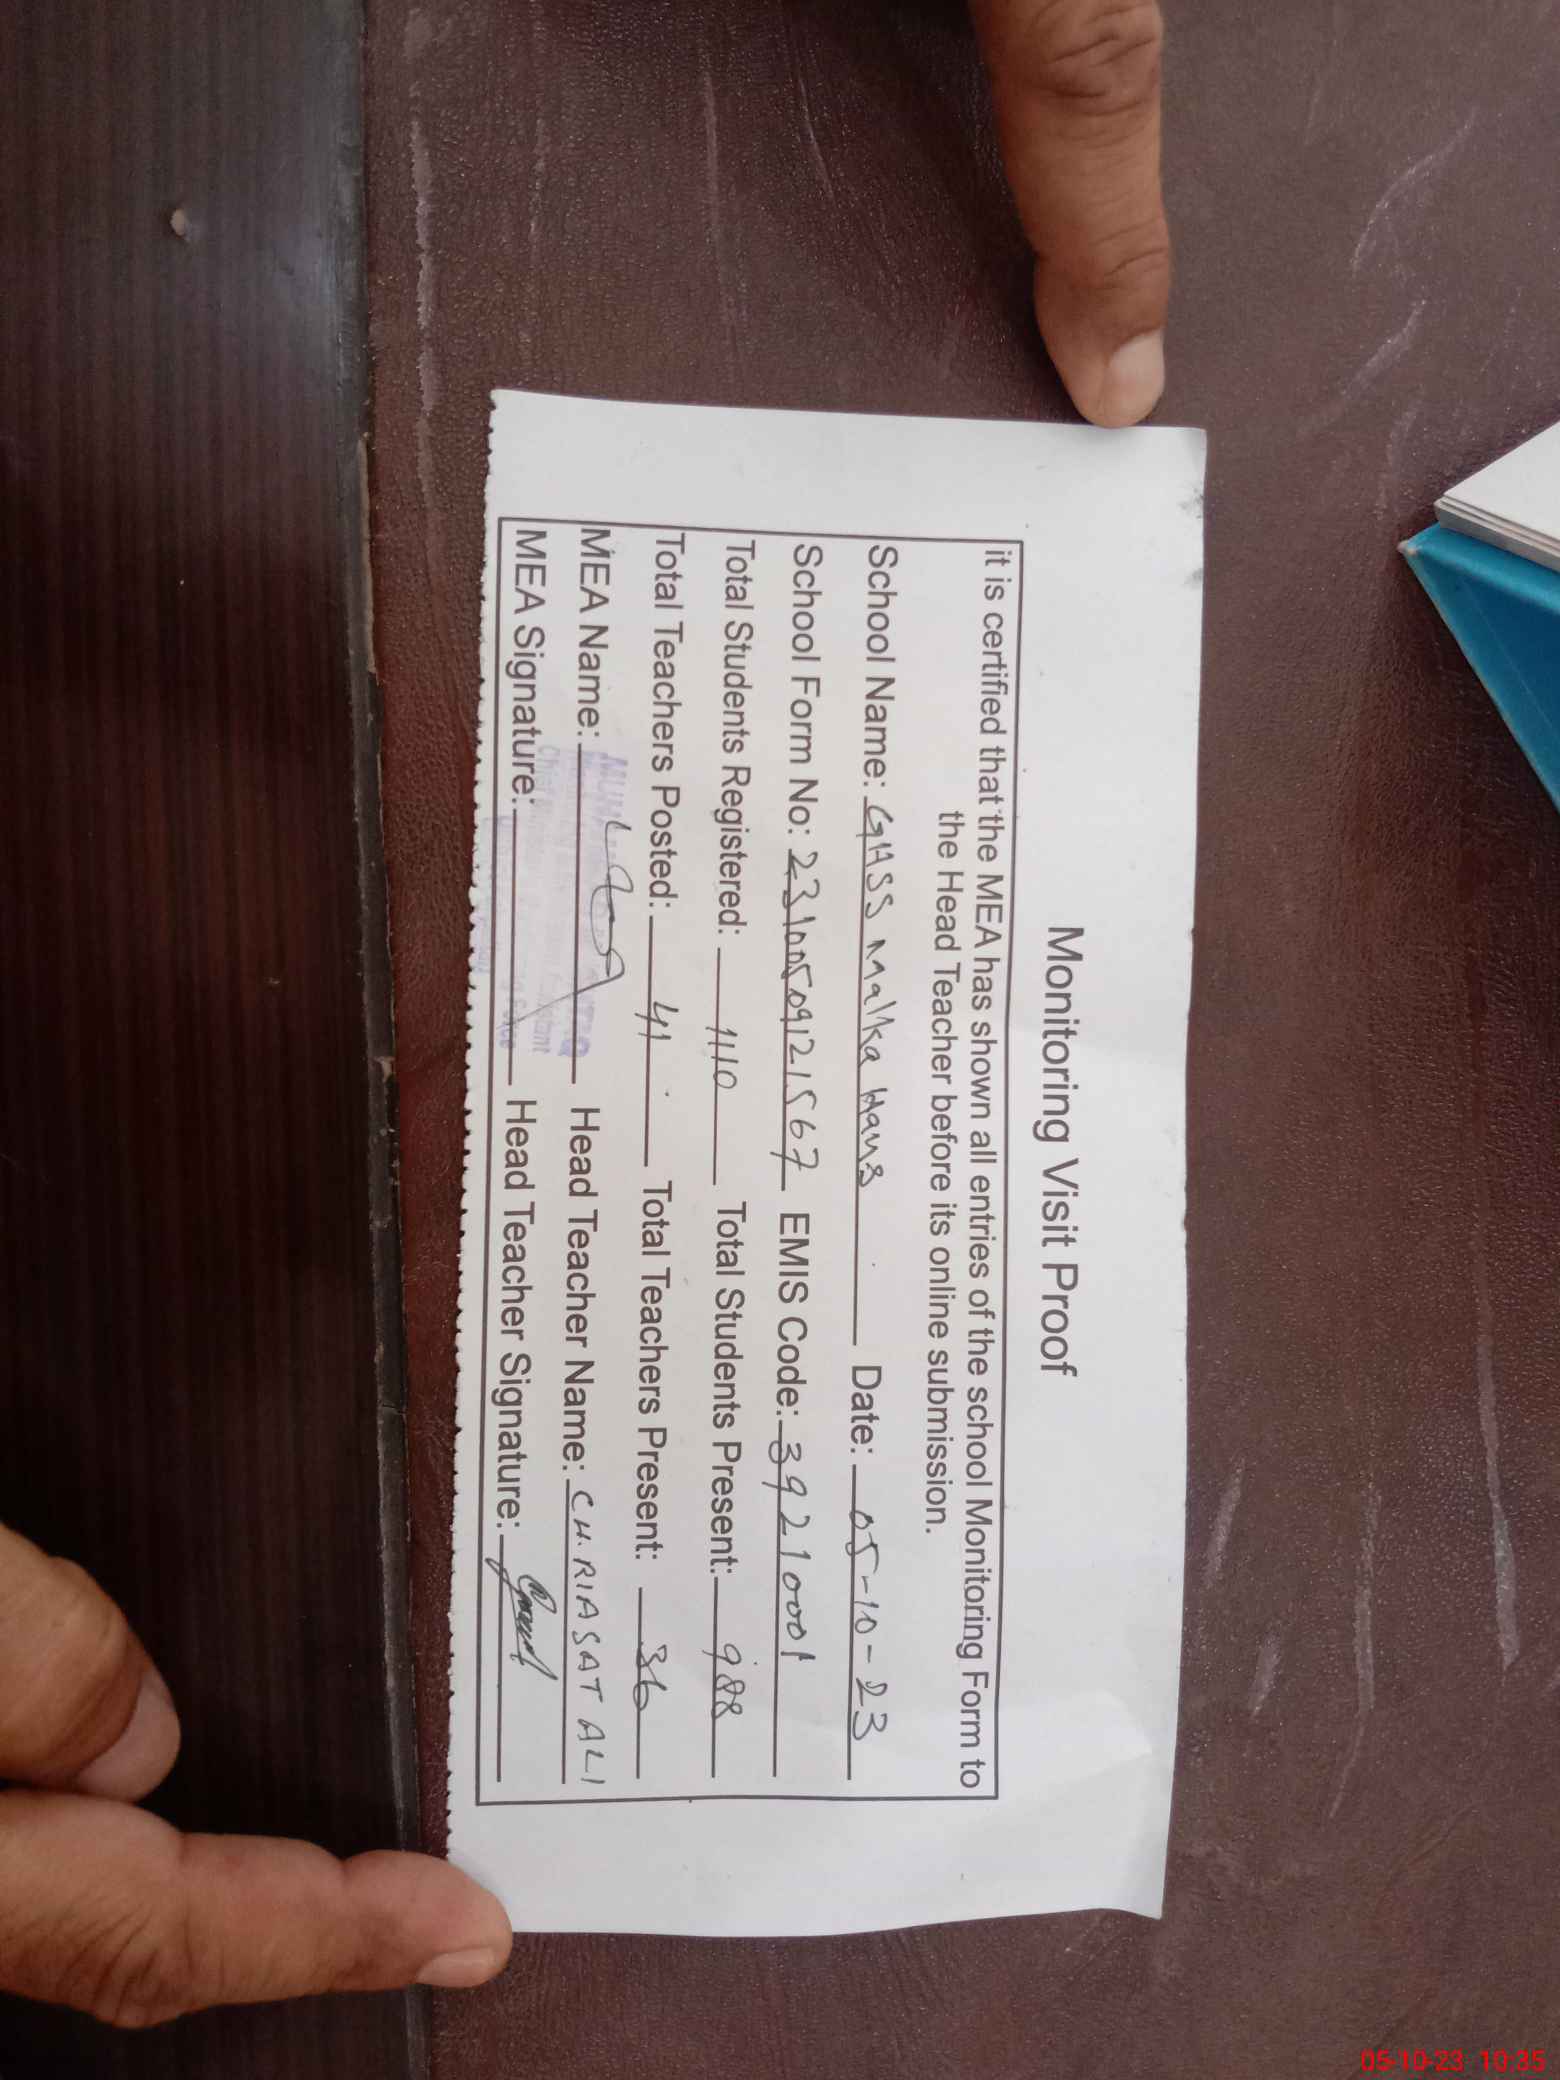 Monitoring Visit Proof
it is certified that the MEA has shown all entries of the school Monitoring Form to
the Head Teacher before its online submission.
School Name: GHSS Malka Hans Date: 05-10-23
School Form No: 23100509121567 EMIS Code: 39210001
Total Students Registered: 1110 Total Students Present: 988
Total Teachers Posted: 41 Total Teachers Present: 36
MEA Name: Head Teacher Name: CH. RIASAT ALI
MEA Signature: Head Teacher Signature:
05-10-23 10:35